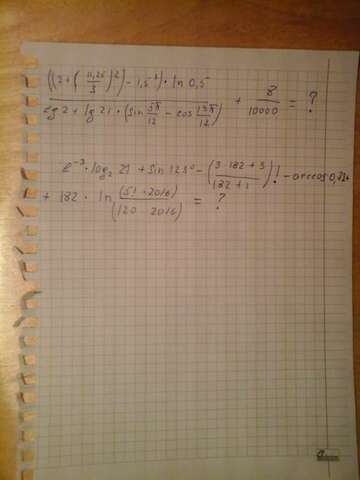 ((2+(11,25/3)^2)-1,5^4)·ln 0,5
lg 2 + lg 21·(sin 5π/12 - cos 13π/12) + 8/10000 = ?
e^-3·log2 21 + sin 123° - ((3 182+3)/(182+1))! - arccos 0,
+ 182·ln (5!·2016)/(120 2016) = ?